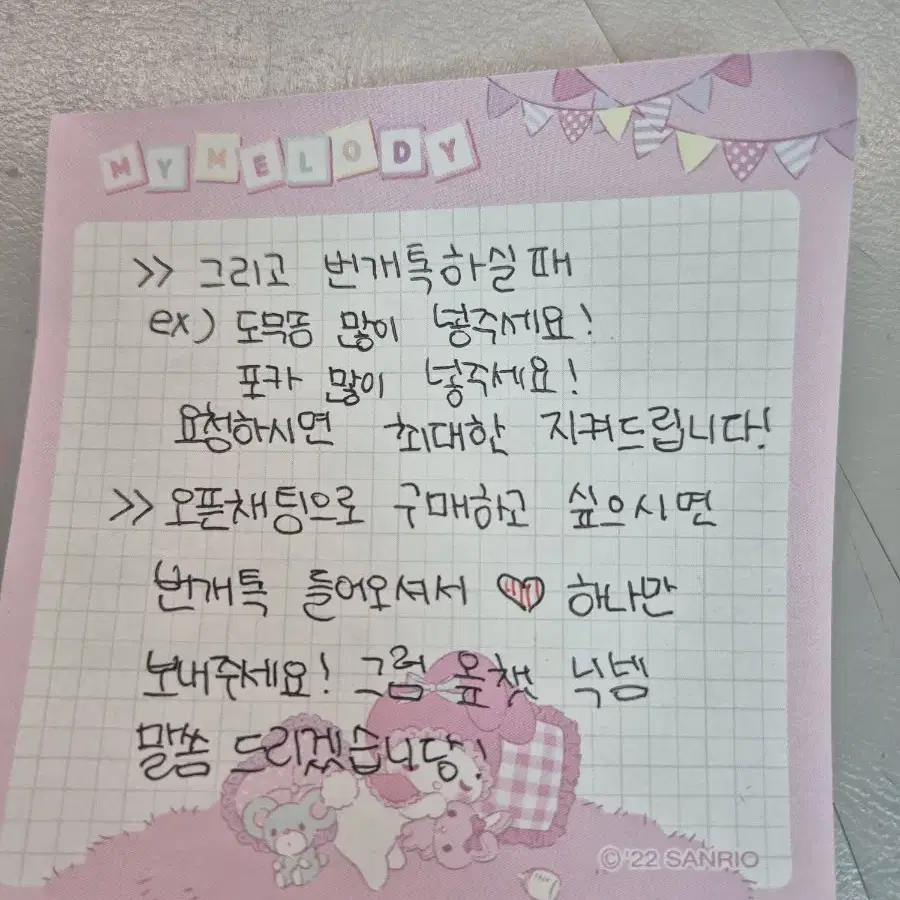 MY MELODY
>> 그리고 번개톡하실 때
ex) 도무송 많이 넣주세요!
포카 많이 넣주세요!
요청하시면 최대한 지켜드립니다!
>> 오픈채팅으로 구매하고 싶으시면
번개톡 들어오셔서 ♥ 하나만
보내주세요! 그럼 옾챗 닉넴
말씀 드리겠습니당!
© '22 SANRIO